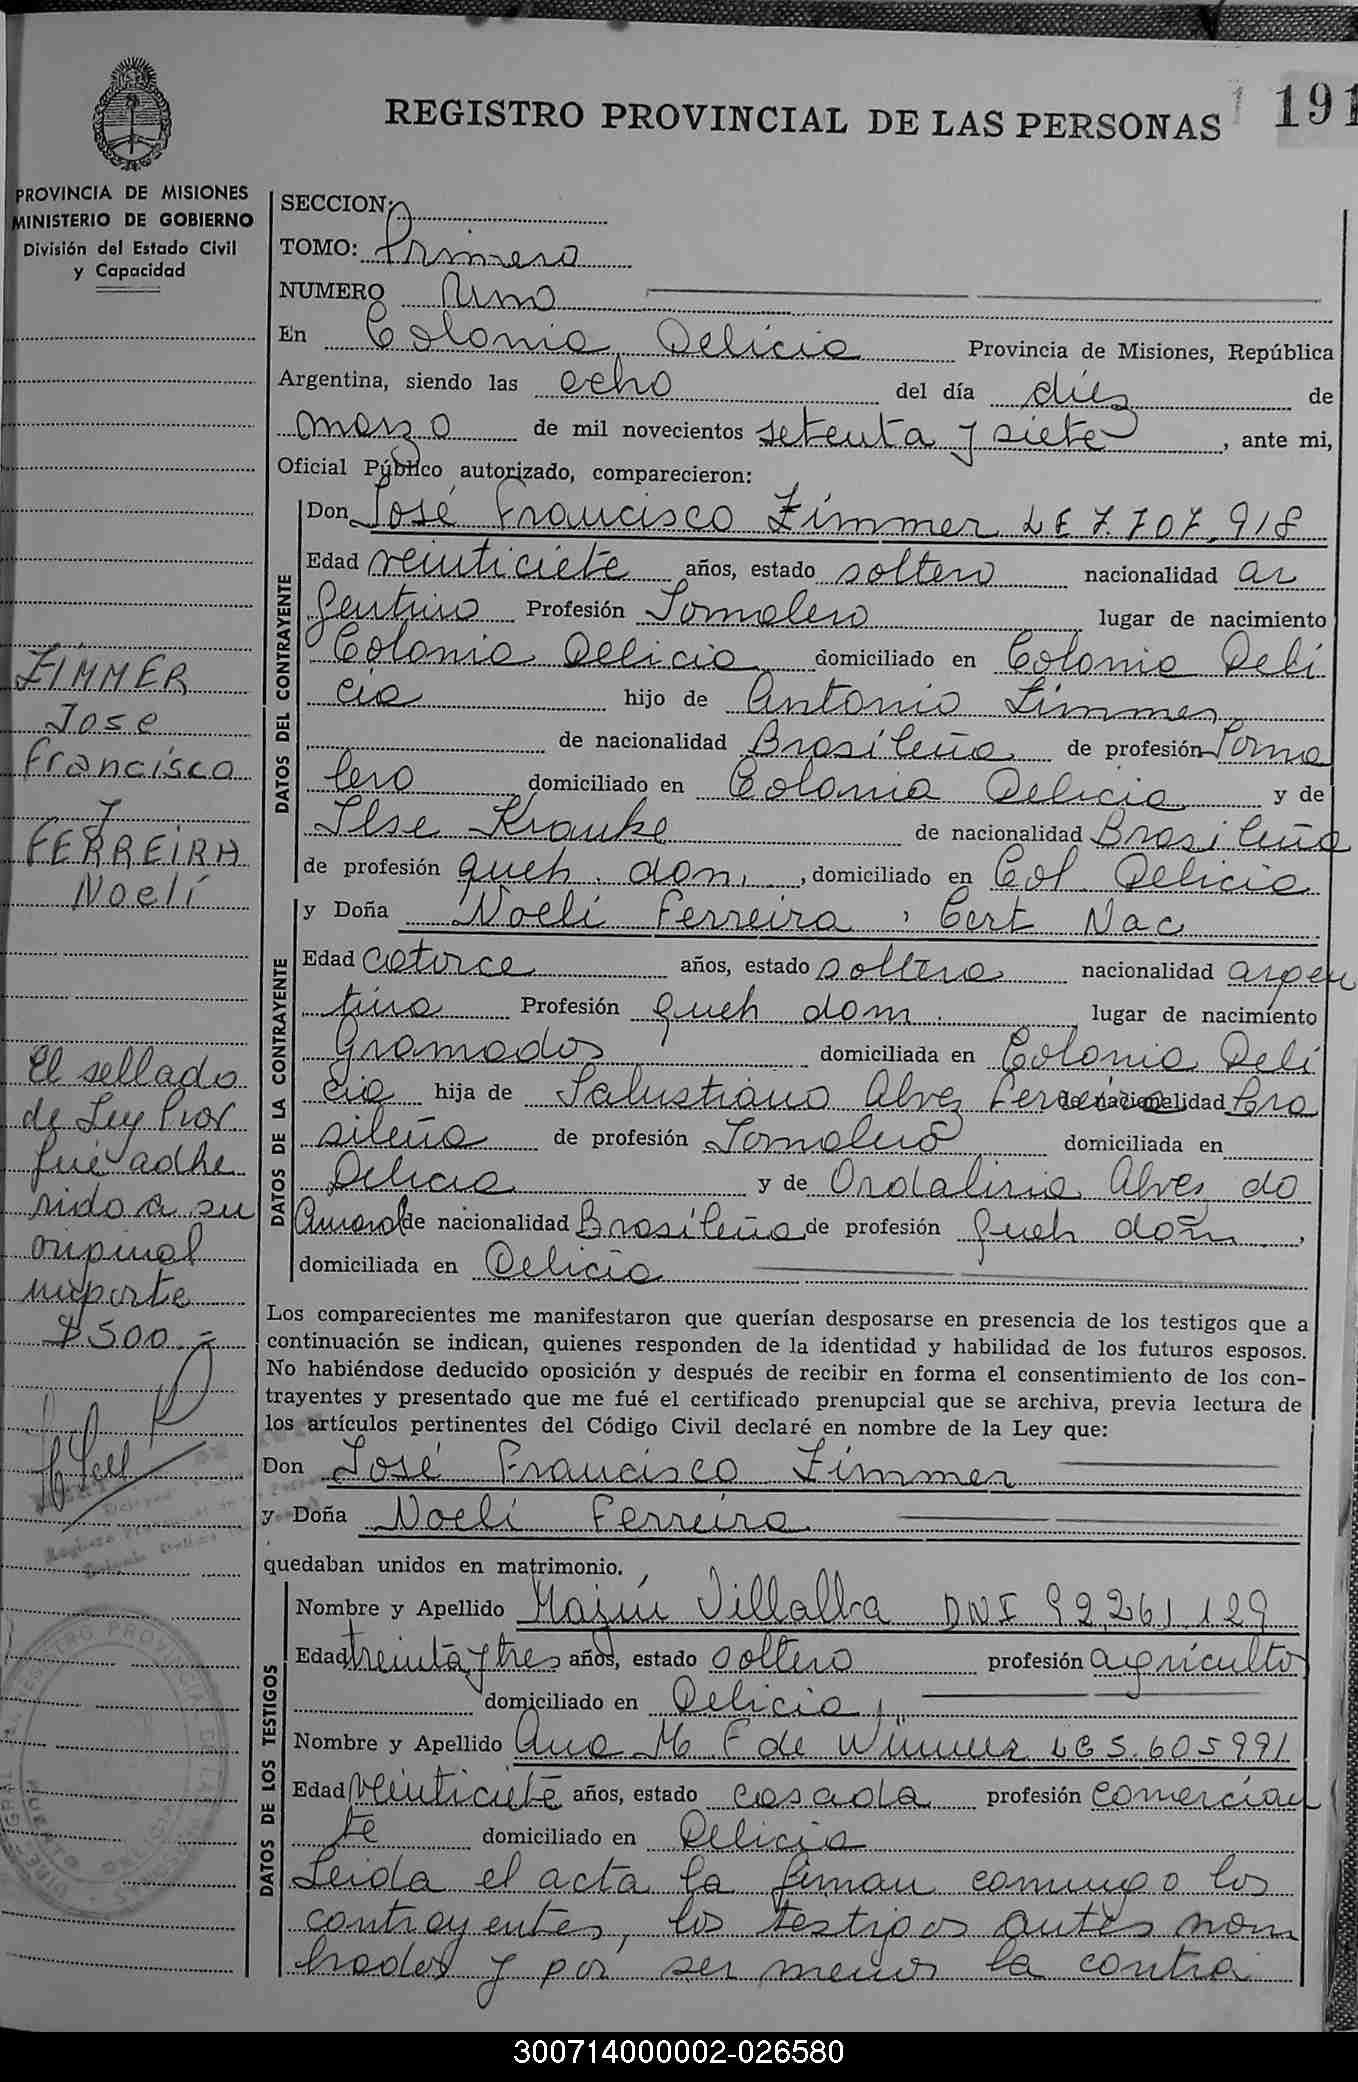 REGISTRO PROVINCIAL DE LAS PERSONAS
191
PROVINCIA DE MISIONES
MINISTERIO DE GOBIERNO
División del Estado Civil
y Capacidad
ZIMMER
Jose
Francisco
y
FERREIRA
Noelí
El sellado
de Ley Prov.
fué adhe
rido a su
original
importe
$ 500.=
SECCION:
TOMO: Primero
NUMERO Uno
En Colonia Delicia Provincia de Misiones, República
Argentina, siendo las ocho del día diez de
marzo de mil novecientos setenta y siete, ante mi,
Oficial Público autorizado, comparecieron:
DATOS DEL CONTRAYENTE
Don José Francisco Zimmer L E 7.707.918
Edad veinticiete años, estado soltero nacionalidad ar
gentino Profesión Jornalero lugar de nacimiento
Colonia Delicia domiciliado en Colonia Deli
cia hijo de Antonio Zimmer
de nacionalidad Brasileña de profesión Jorna
lero domiciliado en Colonia Delicia y de
Ilse Krauke de nacionalidad Brasileña
de profesión queh. dom., domiciliado en Col. Delicia
DATOS DE LA CONTRAYENTE
y Doña Noelí Ferreira, Cert Nac
Edad catorce años, estado soltera nacionalidad argen
tina Profesión queh dom. lugar de nacimiento
Gramados domiciliada en Colonia Deli
cia hija de Salustiano Alvez Ferreira de nacionalidad Bra
sileña de profesión Jornalero domiciliada en
Delicia y de Ordaliria Alves do
Amaral de nacionalidad Brasileña de profesión queh dom.,
domiciliada en Delicia
Los comparecientes me manifestaron que querían desposarse en presencia de los testigos que a
continuación se indican, quienes responden de la identidad y habilidad de los futuros esposos.
No habiéndose deducido oposición y después de recibir en forma el consentimiento de los con-
trayentes y presentado que me fué el certificado prenupcial que se archiva, previa lectura de
los artículos pertinentes del Código Civil declaré en nombre de la Ley que:
Don José Francisco Zimmer
y Doña Noelí Ferreira
quedaban unidos en matrimonio.
DATOS DE LOS TESTIGOS
Nombre y Apellido Villalba DNI 92.261.129
Edad treinta y tres años, estado soltero profesión agriculto
domiciliado en Delicia
Nombre y Apellido Ana M. F de L C 5.605991
Edad veinticiete años, estado casada profesión comercian
te domiciliado en Delicia
Leida el acta la firman conmigo los
contrayentes, los testigos antes nom
brados y por ser menor la contra
300714000002-026580